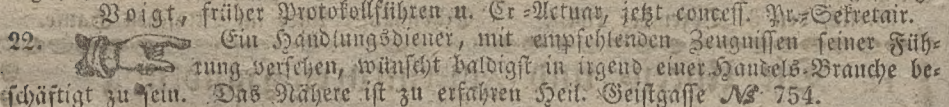 Voigt, früher Protokollführer u. Ex-Actuar, jetzt concess. Pr.-Sekretair.
22. Ein Handlungsdiener, mit empfehlenden Zeugnissen seiner Füh-
rung versehen, wünscht baldigst in irgend einer Handels-Branche be-
schäftigt zu sein. Das Nähere ist zu erfahren Heil. Geistgasse № 754.